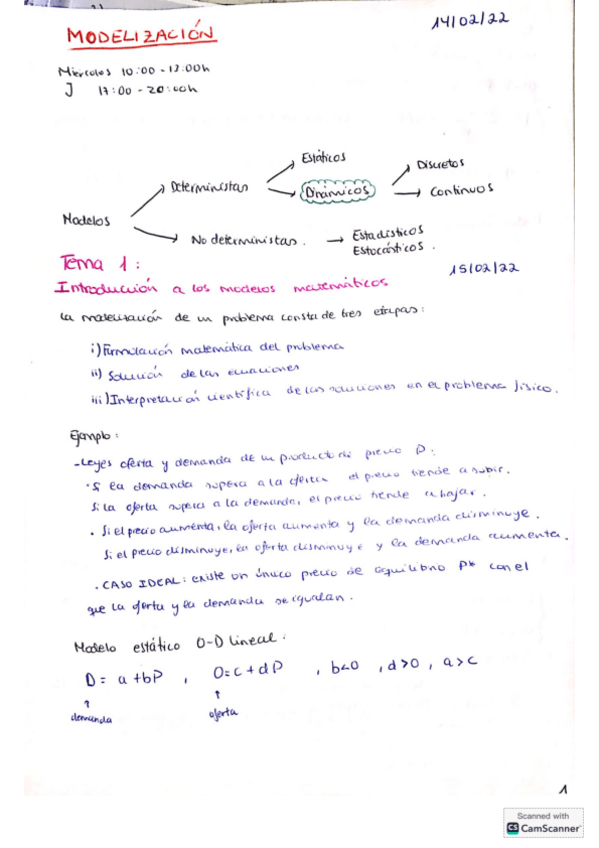 14/02/22
MODELIZACIÓN
Miércoles 10:00 - 12:00h
J 17:00 - 20:00h
Estáticos
Discretos
Deterministas
Dinámicos
Continuos
Modelos
No deterministas.
Estadísticos
Estocásticos.
Tema 1:
15/02/22
Introducción a los modelos matemáticos
La modelización de un problema consta de tres etapas:
i) Formulación matemática del problema
ii) Solución de las ecuaciones
iii) Interpretación científica de las soluciones en el problema físico.
Ejemplo:
-Leyes oferta y demanda de un producto de precio P.
· Si la demanda supera a la oferta el precio tiende a subir.
Si la oferta supera a la demanda, el precio tiende a bajar.
· Si el precio aumenta, la oferta aumenta y la demanda disminuye.
Si el precio disminuye, la oferta disminuye y la demanda aumenta.
· CASO IDEAL: existe un único precio de equilibrio P* con el
que la oferta y la demanda se igualan.
Modelo estático O-D lineal:
D = a + bP , O = c + dP , b<0 , d>0 , a>c
↑ ↑
demanda oferta
1
Scanned with
CS CamScanner